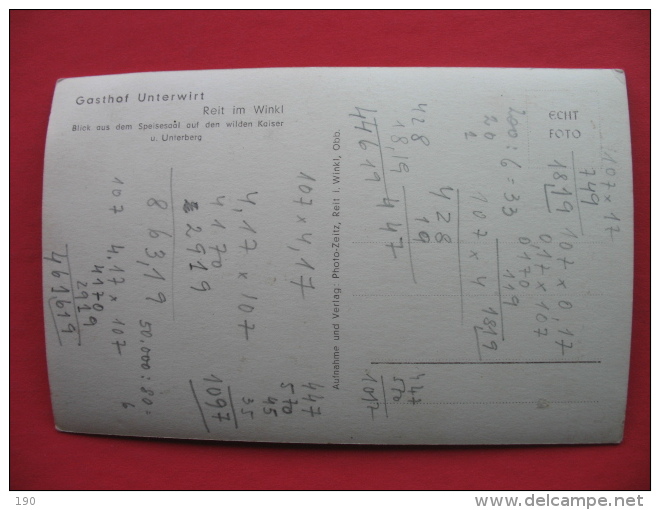 Gasthof Unterwirt
Reit im Winkl
Blick aus dem Speisesaal auf den wilden Kaiser
u. Unterberg
Aufnahme und Verlag Photo-Zeitz, Reit i. Winkl, Obb.
ECHT
FOTO
107 x 17
749
1819
107 x 0,17
0,17 x 107
0170
119
1819
200 : 6 = 33
20
2
107 x 4
428
428
19
447
428
18,19
44619
447
570
1017
107 x 4,17
447
570
45
35
1097
4,17 x 107
4170
2919
863,19
50.000 : 80 =
6
107
4,17 x 107
4170
2919
461619
190
www.delcampe.net